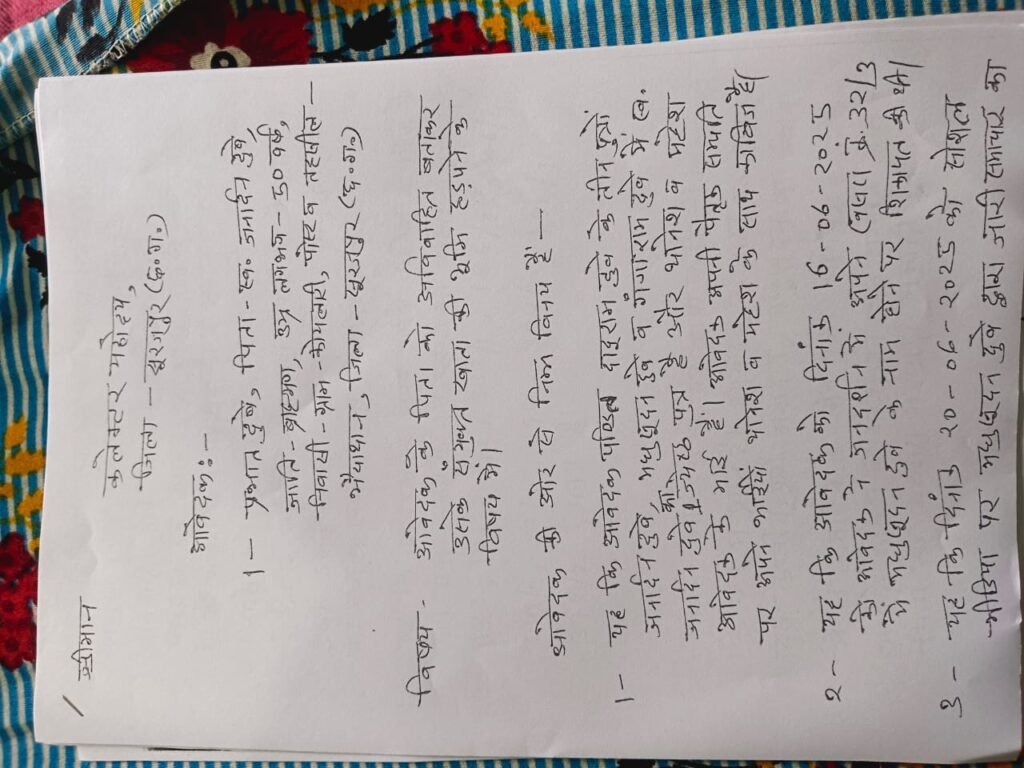 श्रीमान
कलेक्टर महोदय,
जिला - सूरजपुर (छ.ग.)
आवेदक:-
1- प्रकाश दुबे, पिता- स्व. जनार्दन दुबे,
जाति- ब्राह्मण, उम्र लगभग- 50 वर्ष,
निवासी - ग्राम - तहसील-
जिला - सूरजपुर (छ.ग.)
विषय - आवेदक के पिता को अविवाहित बताकर
उनके संयुक्त खाता की भूमि हड़पने के
विषय में।
आवेदक की ओर से निम्न विनय है -
1- यह कि आवेदक दुबे के तीन पुत्रों
जनार्दन दुबे मधुसूदन दुबे व दुबे में स्व.
जनार्दन दुबे का पुत्र है और योगेश व महेश
आवेदक के भाई हैं। आवेदक अपनी पैतृक सम्पत्ति
पर अपने भाईयों योगेश व महेश के साथ काबिज है।
2- यह कि आवेदक को दिनांक 16-06-2025
को आवेदक ने जनदर्शन में अपने 32/3
में मधुसूदन दुबे के नाम होने पर शिकायत की थी।
3- यह कि दिनांक 20-06-2025 को सोशल
मीडिया पर मधुसूदन दुबे द्वारा जारी समाचार का